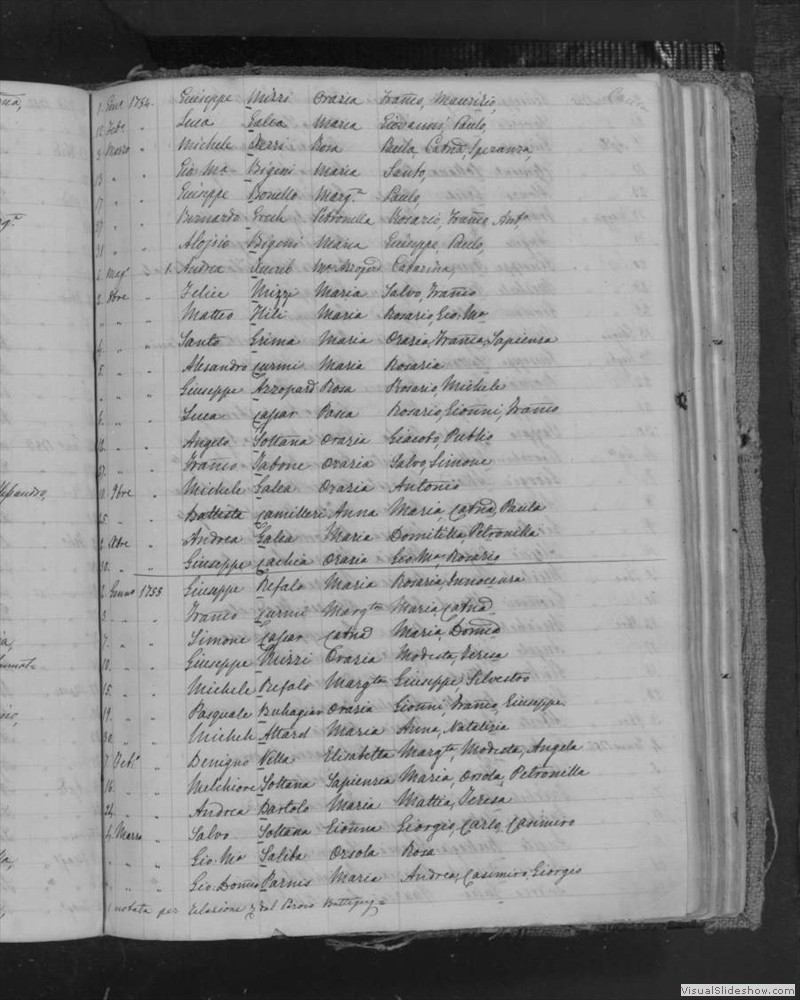 1 Gen.o 1754. Giuseppe Mizzi Orazia Franco, Maurizio,
12 Feb.o " Luca Galea Maria Giovanni, Paulo,
3 Marzo " Michele Dezzi Rosa Paula, Catnd, Speranza,
13 " " Gio: Ma Bigeni Maria Santo,
17 " " Giuseppe Bonello Marg.a Paulo,
" " Bernardo Grech Petronella Rosario, Franco, Anto
31 " " Aloisio Bigeni Maria Giuseppe, Paulo,
1. Andrea Ma Azzopard Catarina,
2. Felice Mizzi Maria Salvo, Franco
" " " Matteo Mili Maria Rosario, Gio: Ma
4. " " Santo Grima Maria Orazia, Franca, Sapienza
5. " " Alesandro Curmi Maria Rosaria
" " " Giuseppe Azzopard Rosa Rosario, Michele
6. " " Luca Caspar Pasca Rosario, Gionni, Franco
16. " " Angelo Soltana Orazia Giacobo, Publio
" " Franco Tabone Orazia Salvo, Simone
9bre " Michele Galea Orazia Antonio
25. " " Battista Camilleri Anna Maria, Catnd, Paula
2 Xbre " Andrea Galea Maria Domitilla, Petronilla
20. " " Giuseppe Cachia Orazia Gio: Ma, Rosario
2. Genno 1755 Giuseppe Refalo Maria Rosaria, Innocenza
3. " " Franco Curmi Margta Maria, Catnd
7. " " Simone Caspar Catnd Maria, Domcd
10. " " Giuseppe Mizzi Orazia Modesta, Teresa
15. " " Michele Refalo Margta Giuseppe, Silvestro
19. " " Pasquale Buhagiar Orazia Gionni, Franco, Giuseppe
30. " " Michele Attard Maria Anna, Natalizia
7 Feb.o " Benigno Vella Elisabetta Margta, Modesta, Angela
16. " " Melchiore Soltana Sapienza Maria, Orsola, Petronilla
24. " " Andrea Bartolo Maria Mattia, Teresa
4. Marzo " Salvo Soltana Gionna Giorgio, Carlo, Casimiro
" " " Gio: Ma Saliba Orsola Rosa
" " " Gio: Domco Parnis Maria Andrea, Casimiro, Giorgio
1 notata per Relazione dal
VisualSlideshow.com